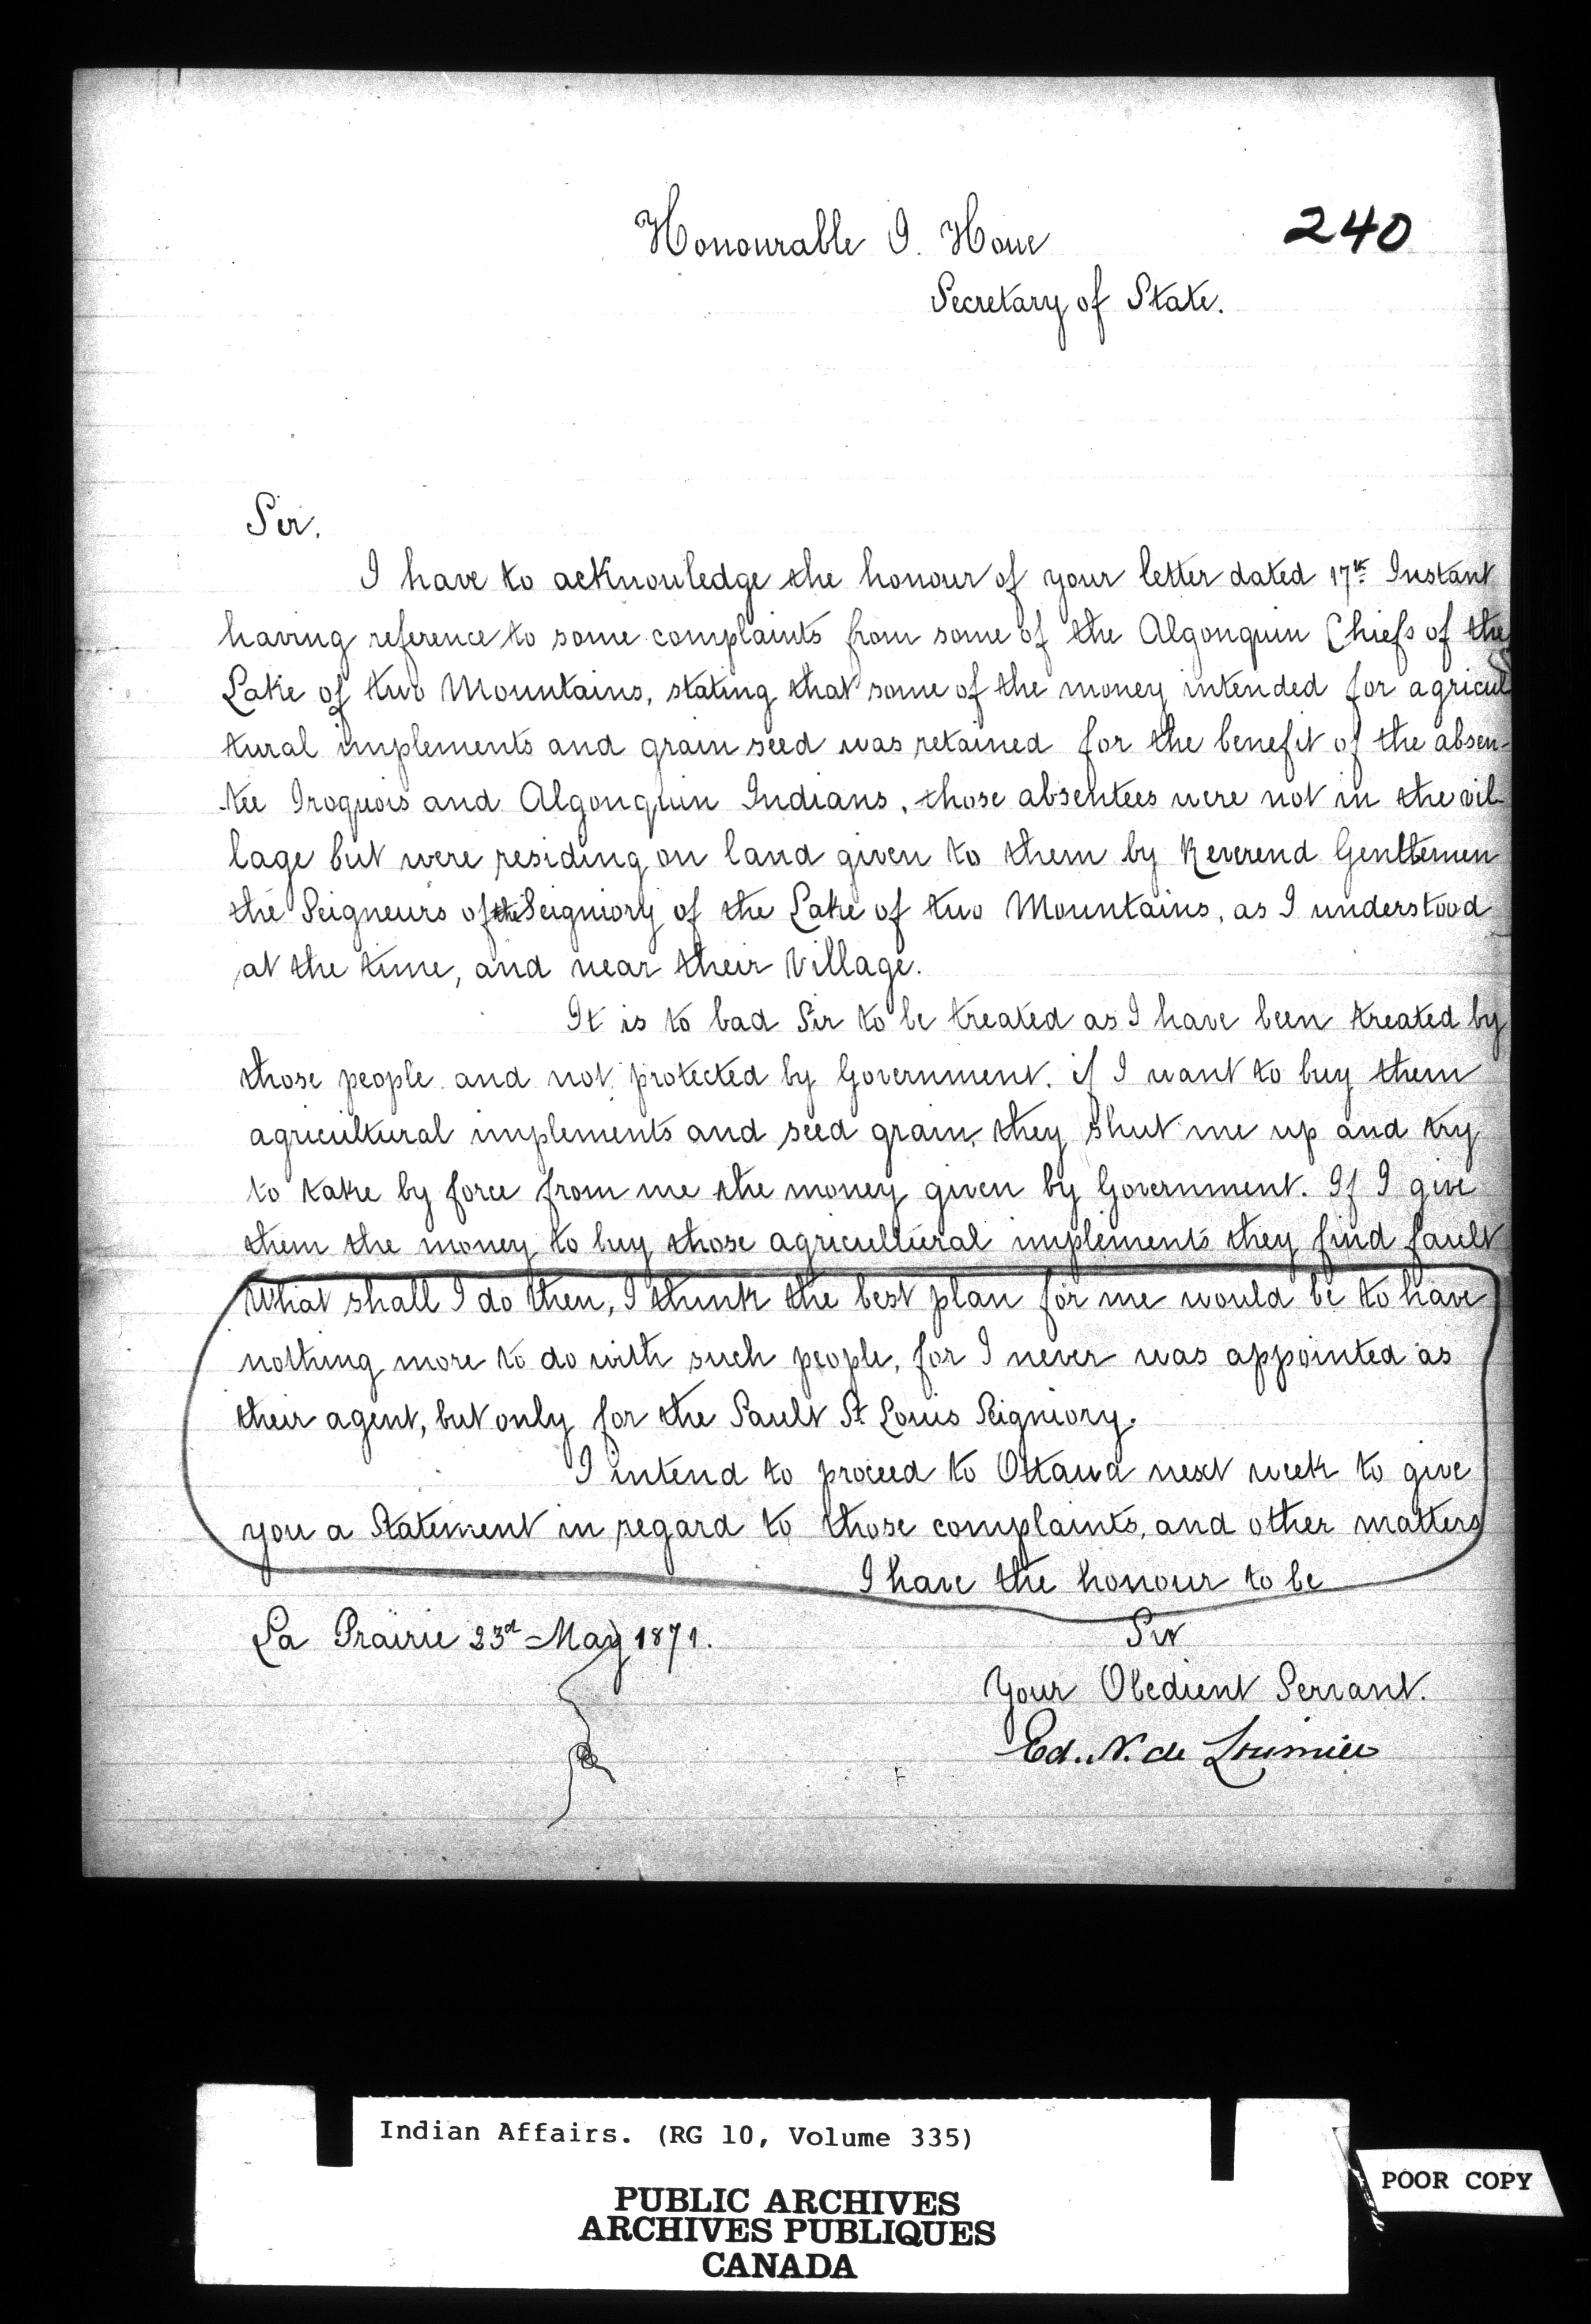 240
Honourable J. Howe
Secretary of State.
Sir.
I have to acknowledge the honour of your letter dated 17th Instant
having reference to some complaints from some of the Algonquin Chiefs of the
Lake of two Mountains, stating that some of the money intended for agricul
tural implements and grain seed was retained for the benefit of the absen-
tee Iroquois and Algonquin Indians, those absentees were not in the vil
lage but were residing on land given to them by Reverend Genttemen
the Seigneurs of the Seigniory of the Lake of two Mountains, as I understood
at the time, and near their Village.
It is to bad Sir to be treated as I have been treated by
those people and not protected by Government. if I want to buy them
agricultural implements and seed grain, they shut me up and try
to take by force from me the money given by Government. If I give
them the money to buy those agricultural implements they find fault
What shall I do then, I think the best plan for me would be to have
nothing more to do with such people, for I never was appointed as
their agent, but only for the Sault St Louis Seigniory.
I intend to proceed to Ottawa next week to give
you a Statement in regard to those complaints, and other matters
I have the honour to be
La Prairie 23d May 1871.
Sir
Your Obedient Servant.
Ed. N. de Lorimier
Indian Affairs. (RG 10, Volume 335)
PUBLIC ARCHIVES
ARCHIVES PUBLIQUES
CANADA
POOR COPY